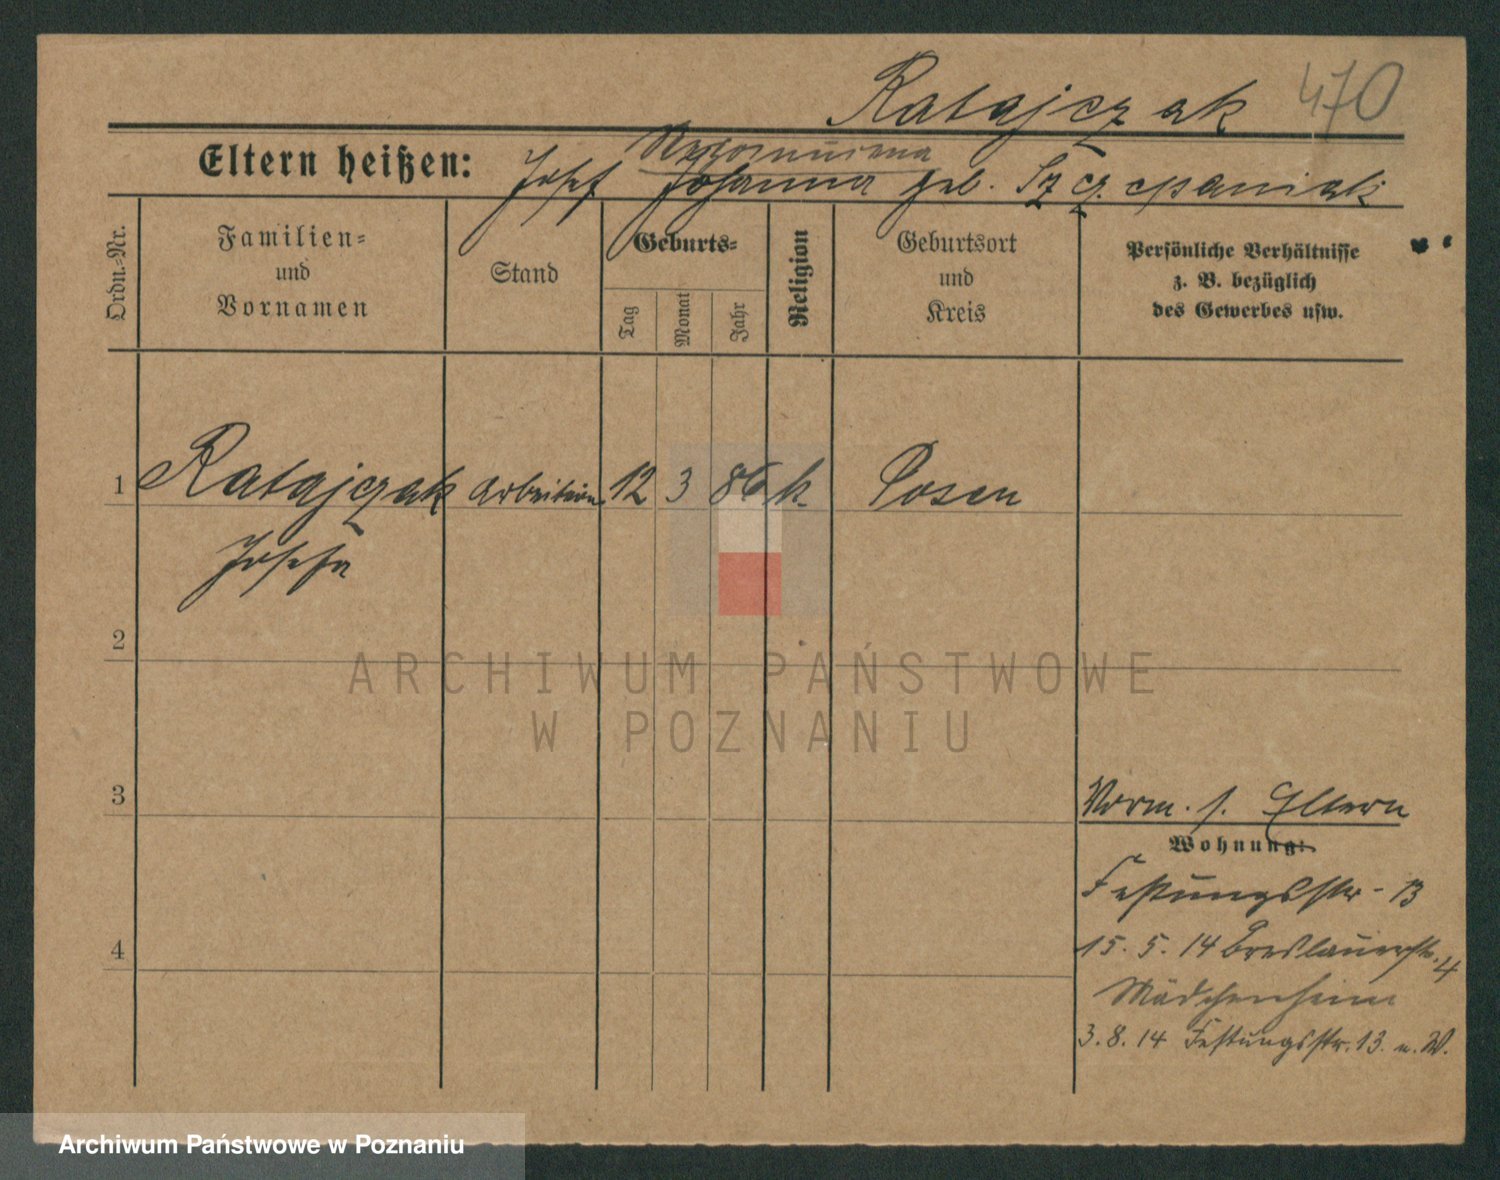 Ratajczak 470
Nepomucena
Eltern heißen: Josef Johanna geb. Szczepaniak
Ordn.-Nr.
Familien-
und
Vornamen
Stand
Geburts-
Tag
Monat
Jahr
Religion
Geburtsort
und
Kreis
Persönliche Verhältnisse
z. B. bezüglich
des Gewerbes usw.
1 Ratajczak Arbeiterin 12 3 86 k Posen
Josefa
2
ARCHIWUM PAŃSTWOWE
W POZNANIU
3
Vorm. s. Eltern
Wohnung:
Festungsstr. 13
4
15. 5. 14 Breslauerstr. 4
Mädchenheim
3. 8. 14 Festungsstr. 13. n. W.
Archiwum Państwowe w Poznaniu